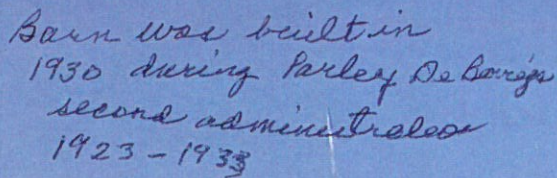 Barn was built in
1930 during Parley DeBerry's
second administration
1923 - 1933